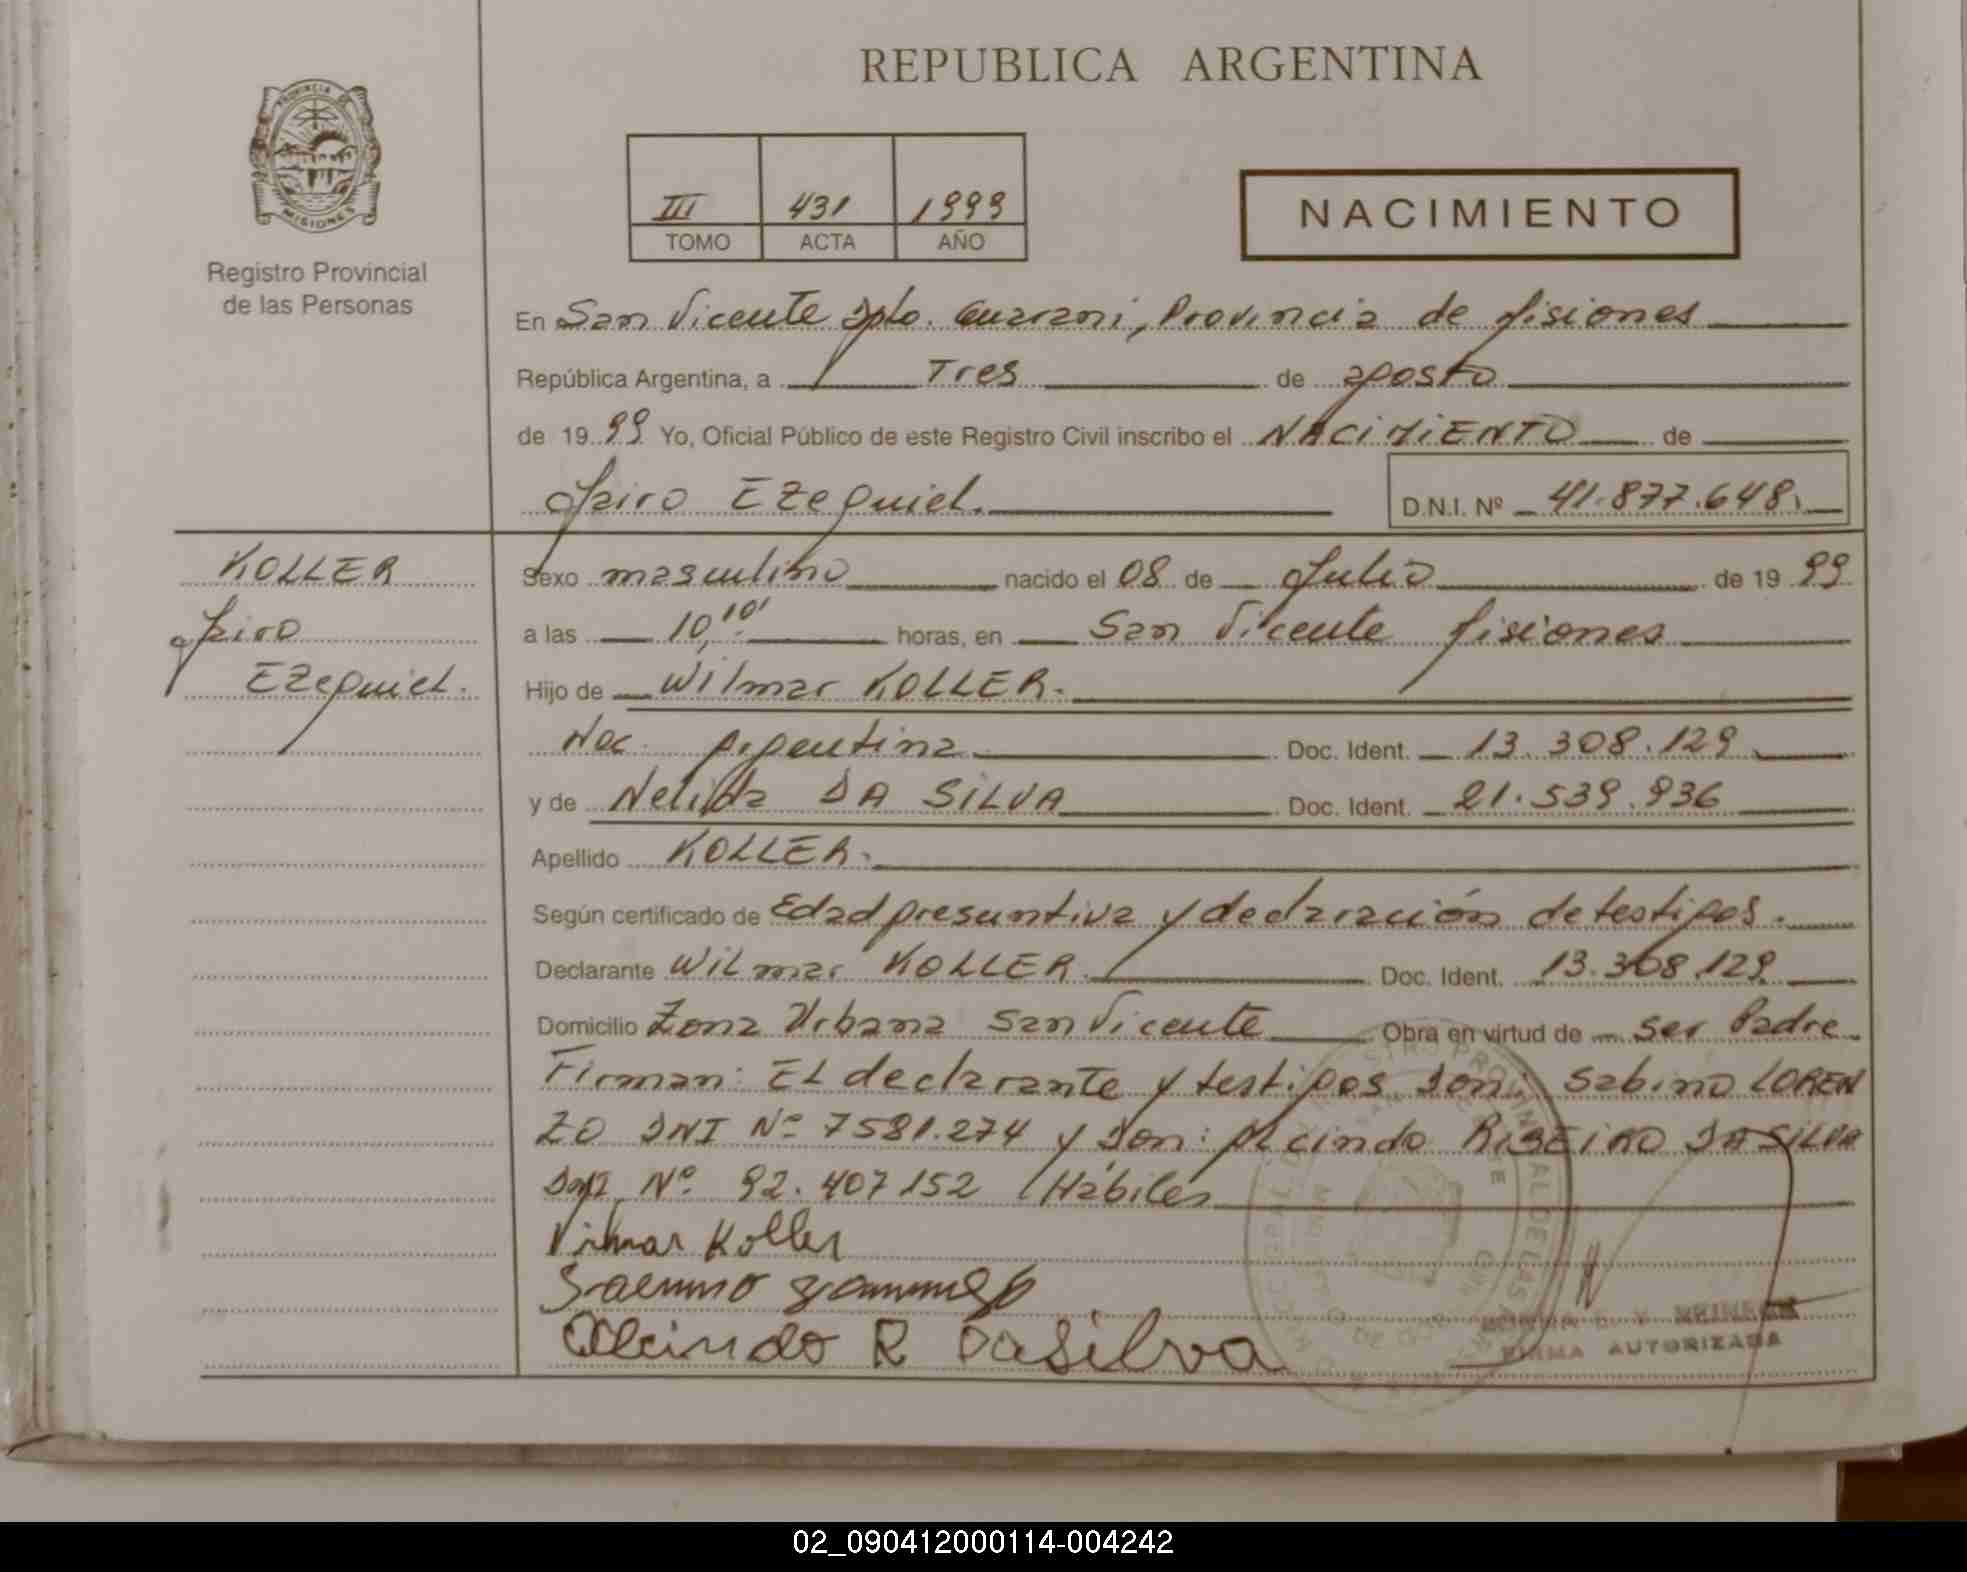 REPUBLICA ARGENTINA
PROVINCIA DE
MISIONES
Registro Provincial
de las Personas
III 431 1999
TOMO ACTA AÑO
NACIMIENTO
En San Vicente Dpto. Guarani, Provincia de Misiones
República Argentina, a Tres de agosto
de 1999 Yo, Oficial Público de este Registro Civil inscribo el NACIMIENTO de
Jairo Ezequiel.
D.N.I. Nº 41.877.648.
KOLLER
Jairo
Ezequiel.
Sexo masculino nacido el 08 de Julio de 1999
a las 10,10' horas, en San Vicente Misiones
Hijo de Wilmar KOLLER.
Nac. Argentina Doc. Ident. 13.308.129
y de Nelida DA SILVA Doc. Ident. 21.539.936
Apellido KOLLER.
Según certificado de Edad presuntiva y declaración de testigos.
Declarante Wilmar KOLLER. Doc. Ident. 13.308.129
Domicilio Zona Urbana San Vicente Obra en virtud de ser Padre
Firman: El declarante y testigos Don: Sabino LOREN
ZO DNI Nº 7581.274 y Don: Alcindo RIBEIRO DA SILVA
DNI Nº 92.407152 Hábiles
Vilmar Koller
Alcindo R Dasilva
FIRMA AUTORIZADA
02_090412000114-004242